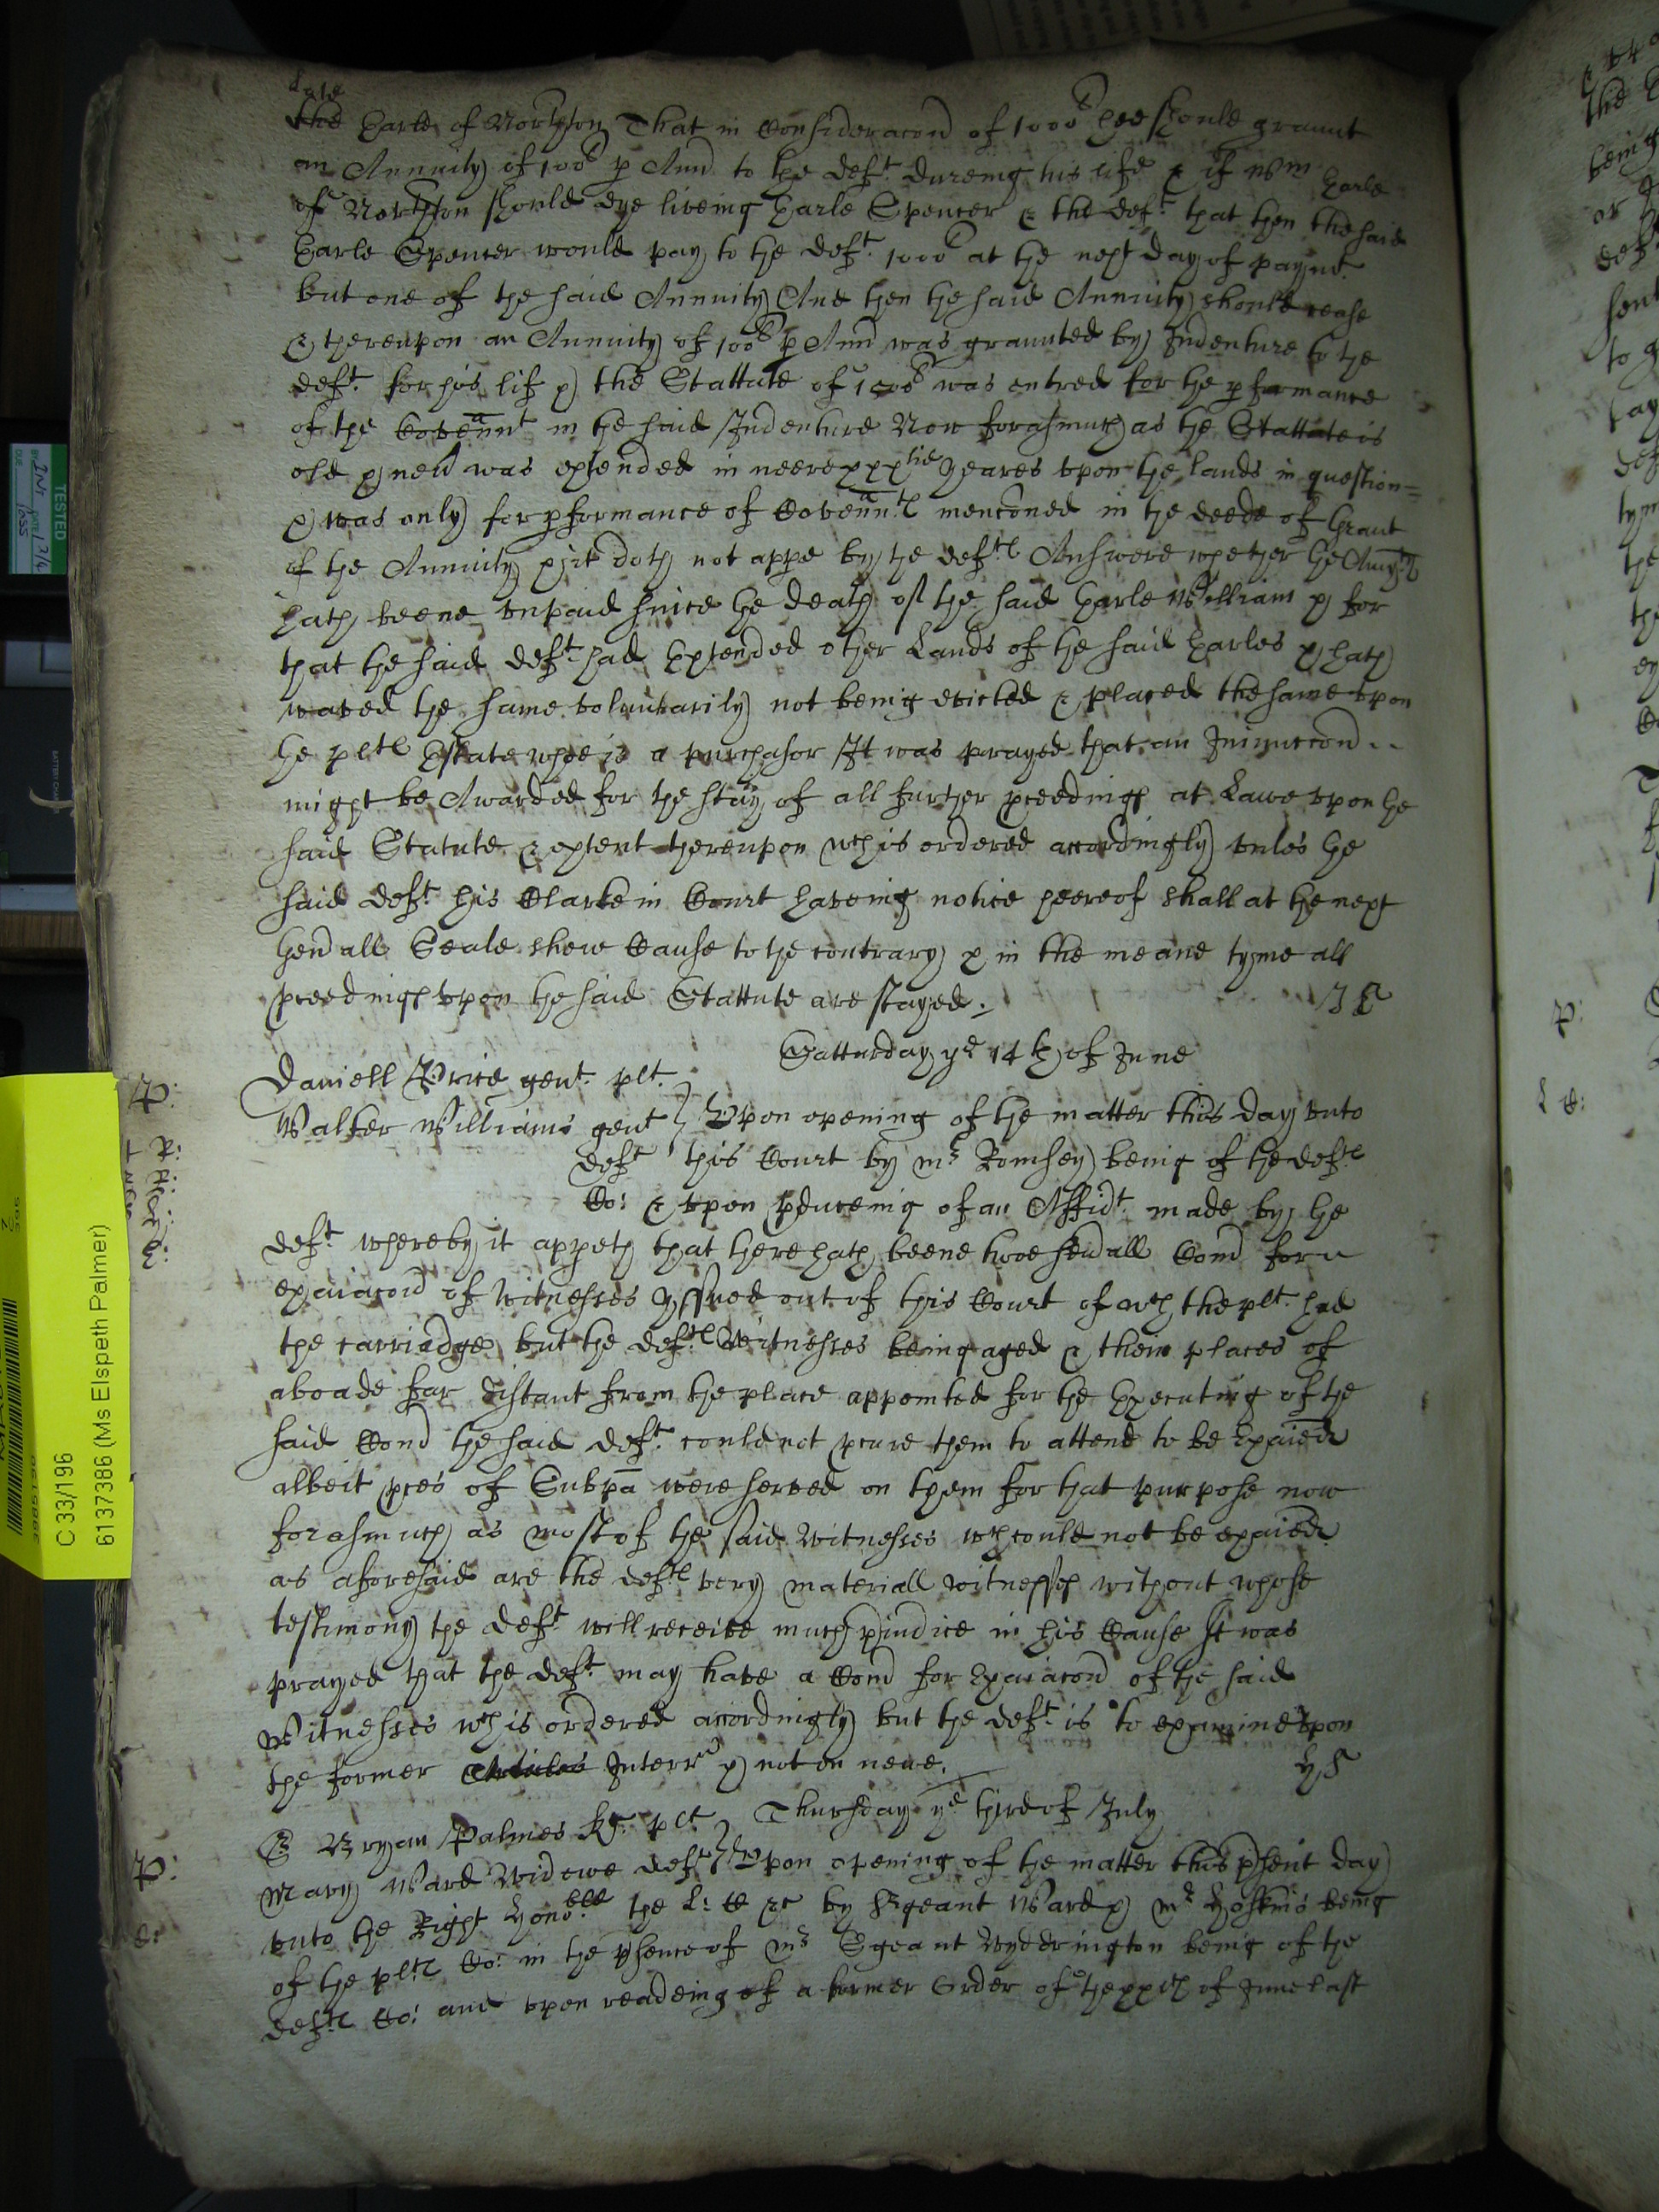 late
the Earle of North'ton That in Consideracon of 1000l hee should graunt
an Annuity of 100l p Ann to the deft dureing his life & if Wm Earle
of North'ton should dye liveing Earle Spencer & the deft that then the said
Earle Spencer would pay to the deft 1000l at the next day of paymt
but one of the said Annuity And then the said Annuity should cease
& thereupon an Annuity of 100l p Ann was graunted by Indenture to the
deft for his life & the Stattute of 1000l was entred for the pformance
of the Covennt in the said Indenture Now forasmuch as the Stattute is
old & new was extended in neere xxxtie yeares upon the lands in question
& was only for pformance of Covennts menconed in the deede of Graunt
of the Annuity & it doth not appe by the defts Answere whether the Annty
hath beene unpaid since the death of the said Earle William & for
that the said deft had Extended other Lands of the said Earles & hath
waved the same voluntarily not being evicted & placed the same upon
the plts Estate whoe is a purchasor It was prayed that an Iniunccon
might be Awarded for the stay of all further pceedings at Lawe upon the
said Statute & extent thereupon wch is ordered accordingly unles the
said deft his Clarke in Court haveing notice hereof shall at the next
Genall Seale shew Cause to the contrary & in the meane tyme all
pceedings upon the said Stattute are stayed.
Satturday ye 14th of June
Daniell Price gent. plt.
Walter Williams gent } Upon opening of the matter this day unto
deft this Court by mr Romsey being of the defts
Co: & upon pduceing of an Affidt made by the
deft whereby it appeth that there hath beene twoe sevall Comd for
exaiacon of Witnesses yssued out of this Court of wch the plt. had
the carriadge but the defts Witnesses being aged & their places of
aboade far distant from the place appointed for the Executing of the
said Comd the said deft could not pcure them to attend to be Exaied
albeit pces of Subpa were served on them for that purpose now
forasmuch as most of the said Witnesses wch could not be exaied
as aforesaid are the defts very materiall witnesses without whose
testimony the deft will receive much piudice in his Cause It was
prayed that the deft may have a Comd for Exaiacon of the said
Witnesses wch is ordered accordingly but the deft is to examine upon
the former Articles Interr & not on newe.
Thursday ye third of July
Sr Bryan Palmes Kt. plt.
Mary Ward Widowe deft } Upon opening of the matter this psent day
unto the Right Honoble the L: C &c by Sgeant Ward & mr Hoskins being
of the plts Co: in the psence of mr Sgeant Wyddrington being of the
defts Co: and upon readeing of a former Order of the xxth of June last
P:
P:
TESTED
C 33/196
6137386 (Ms Elspeth Palmer)